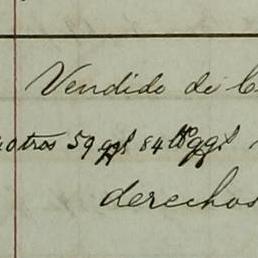 Vendido de
otros 59 qqs 84 lbs qqs
derechos